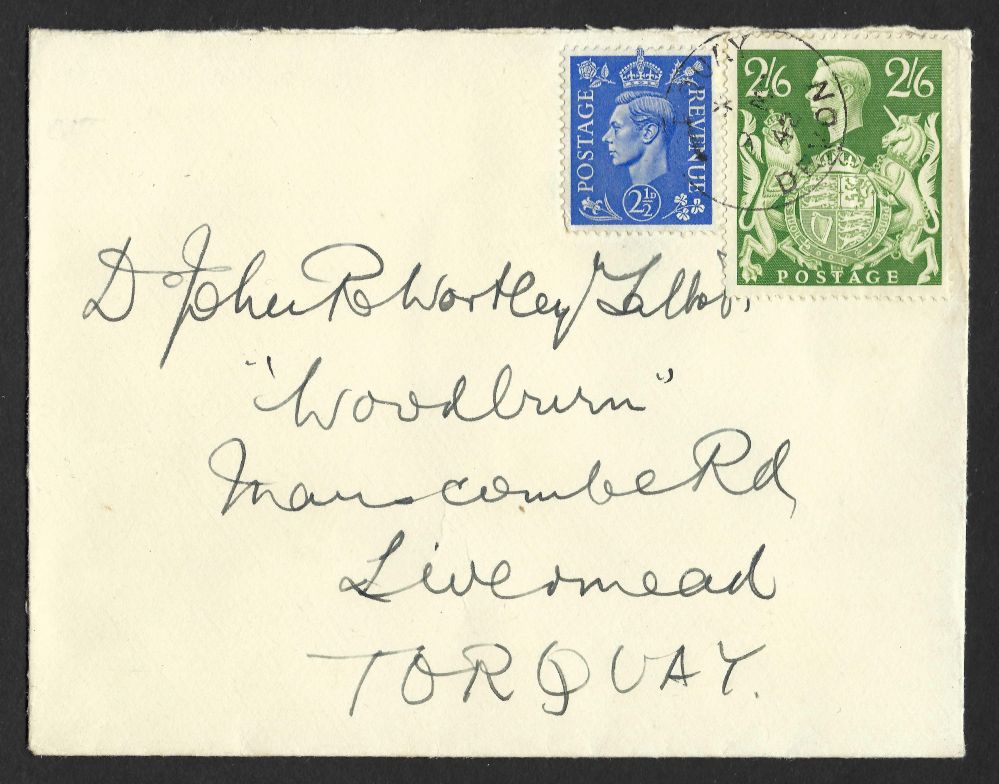 POSTAGE REVENUE
2½D
2/6 2/6
POSTAGE
DEVON
D John R Wortley Talbot
"Woodburn"
Manscombe Rd
Livermead
TORQUAY.